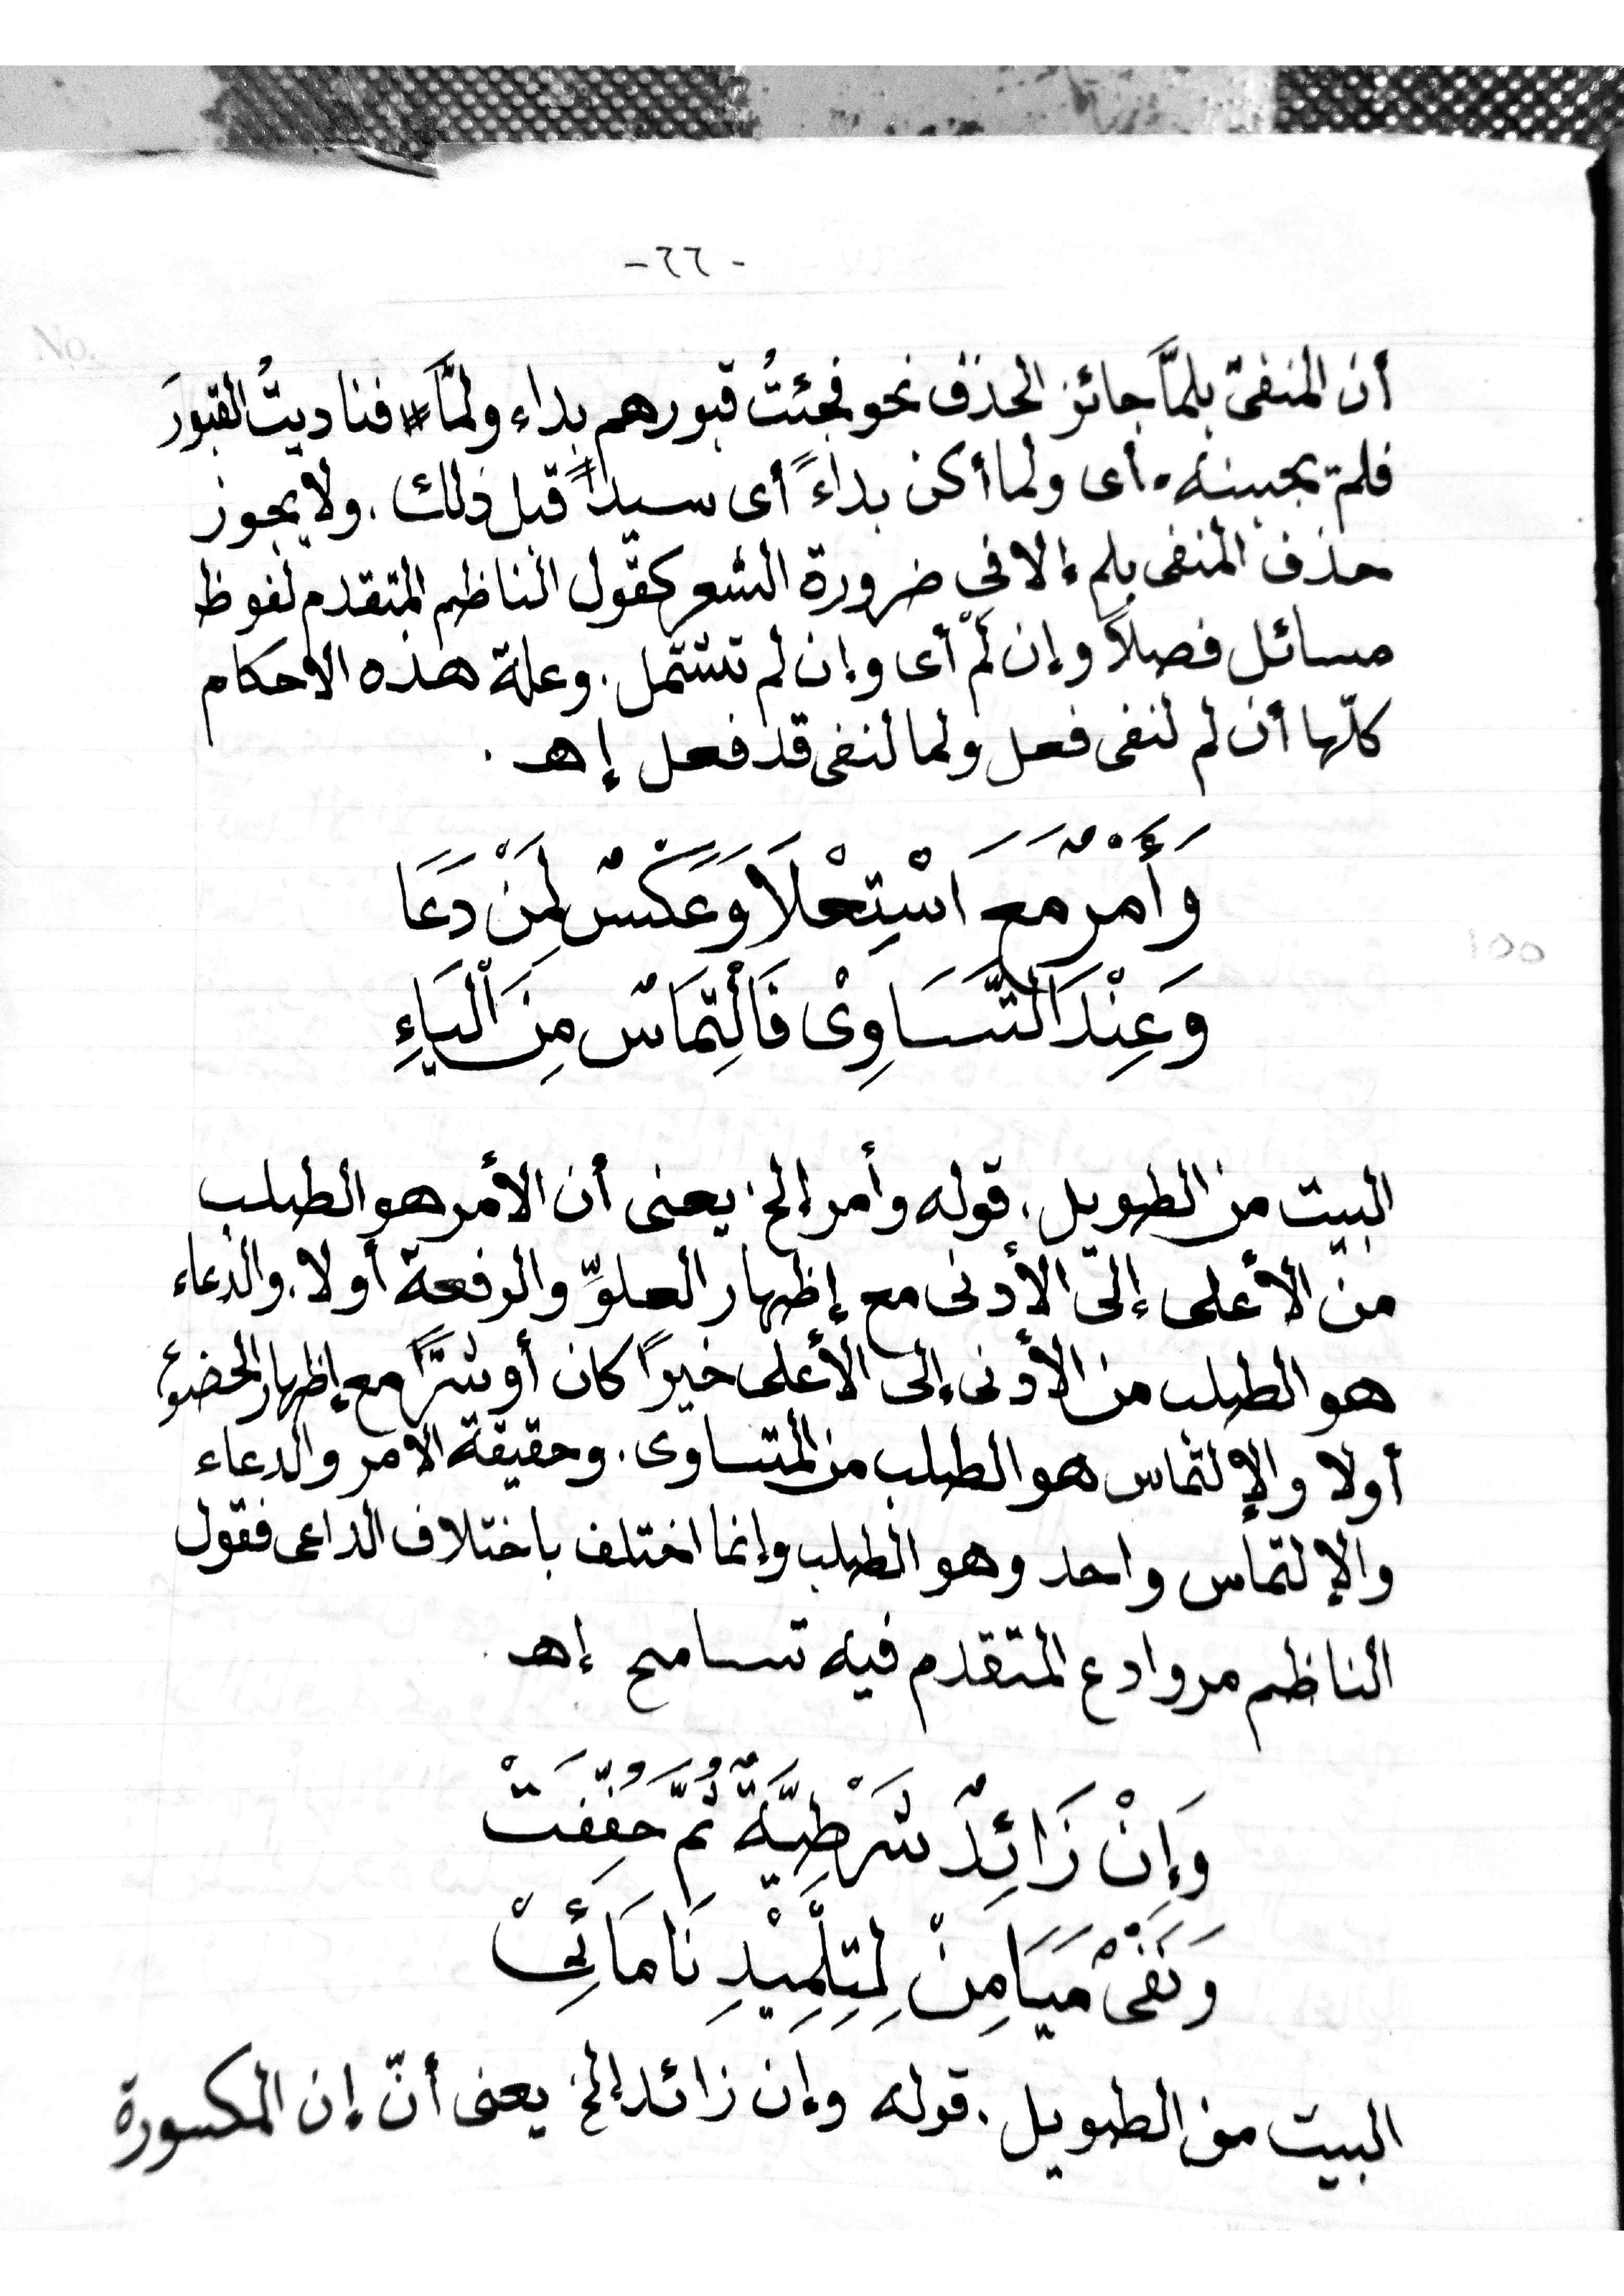 - ٦٦ -
No.
أن المنفى بلمَّا جائز الحذف نحو فجئتُ قبورهم بداء ولمَّا # فناديتُ القبورَ
فلم يجبنه . أى ولما أكن بداءً أى سيداً قبل ذلك . ولا يجوز
حذف المنفى بلم إلا في ضرورة الشعر كقول الناظم المتقدم لفوظ
مسائل فصلاً وإن لَمْ أى وإن لم تشتمل . وعلة هذه الاحكام
كلّها أن لم لنفى فعل ولما لنفى قد فعل إهـ .
وَأَمْرٌ مَعَ اسْتِعْلَا وَعَكْسٌ لِمَنْ دَعَا
وَعِنْدَ التَّسَاوِىْ فَالْتِمَاسٌ مِنَ الْيَاءِ
١٥٥
البيت من الطويل . قوله وأمر إلخ يعنى أن الأمر هو الطلب
من الأعلى إلى الأدنى مع إظهار العلوِّ والرفعة أولا . والدعاء
هو الطلب من الأدنى إلى الأعلى خيراً كان أو شرًّا مع إظهار الخضوع
أولا والإلتماس هو الطلب من المتساوى . وحقيقة الامر والدعاء
والإلتماس واحد وهو الطلب وإنما اختلف باختلاف الداعى فقول
الناظم مر وادع المتقدم فيه تسامح إهـ .
وَإِنْ زَائِدٌ شَرْطِيَّةٌ ثُمَّ خُفِّفَتْ
وَنَفْىٌ مَيَامِنْ لِتِلْمِيْذِنَا مَائِىْ
البيت من الطويل . قوله وإن زائد إلخ يعنى أنّ إن المكسورة